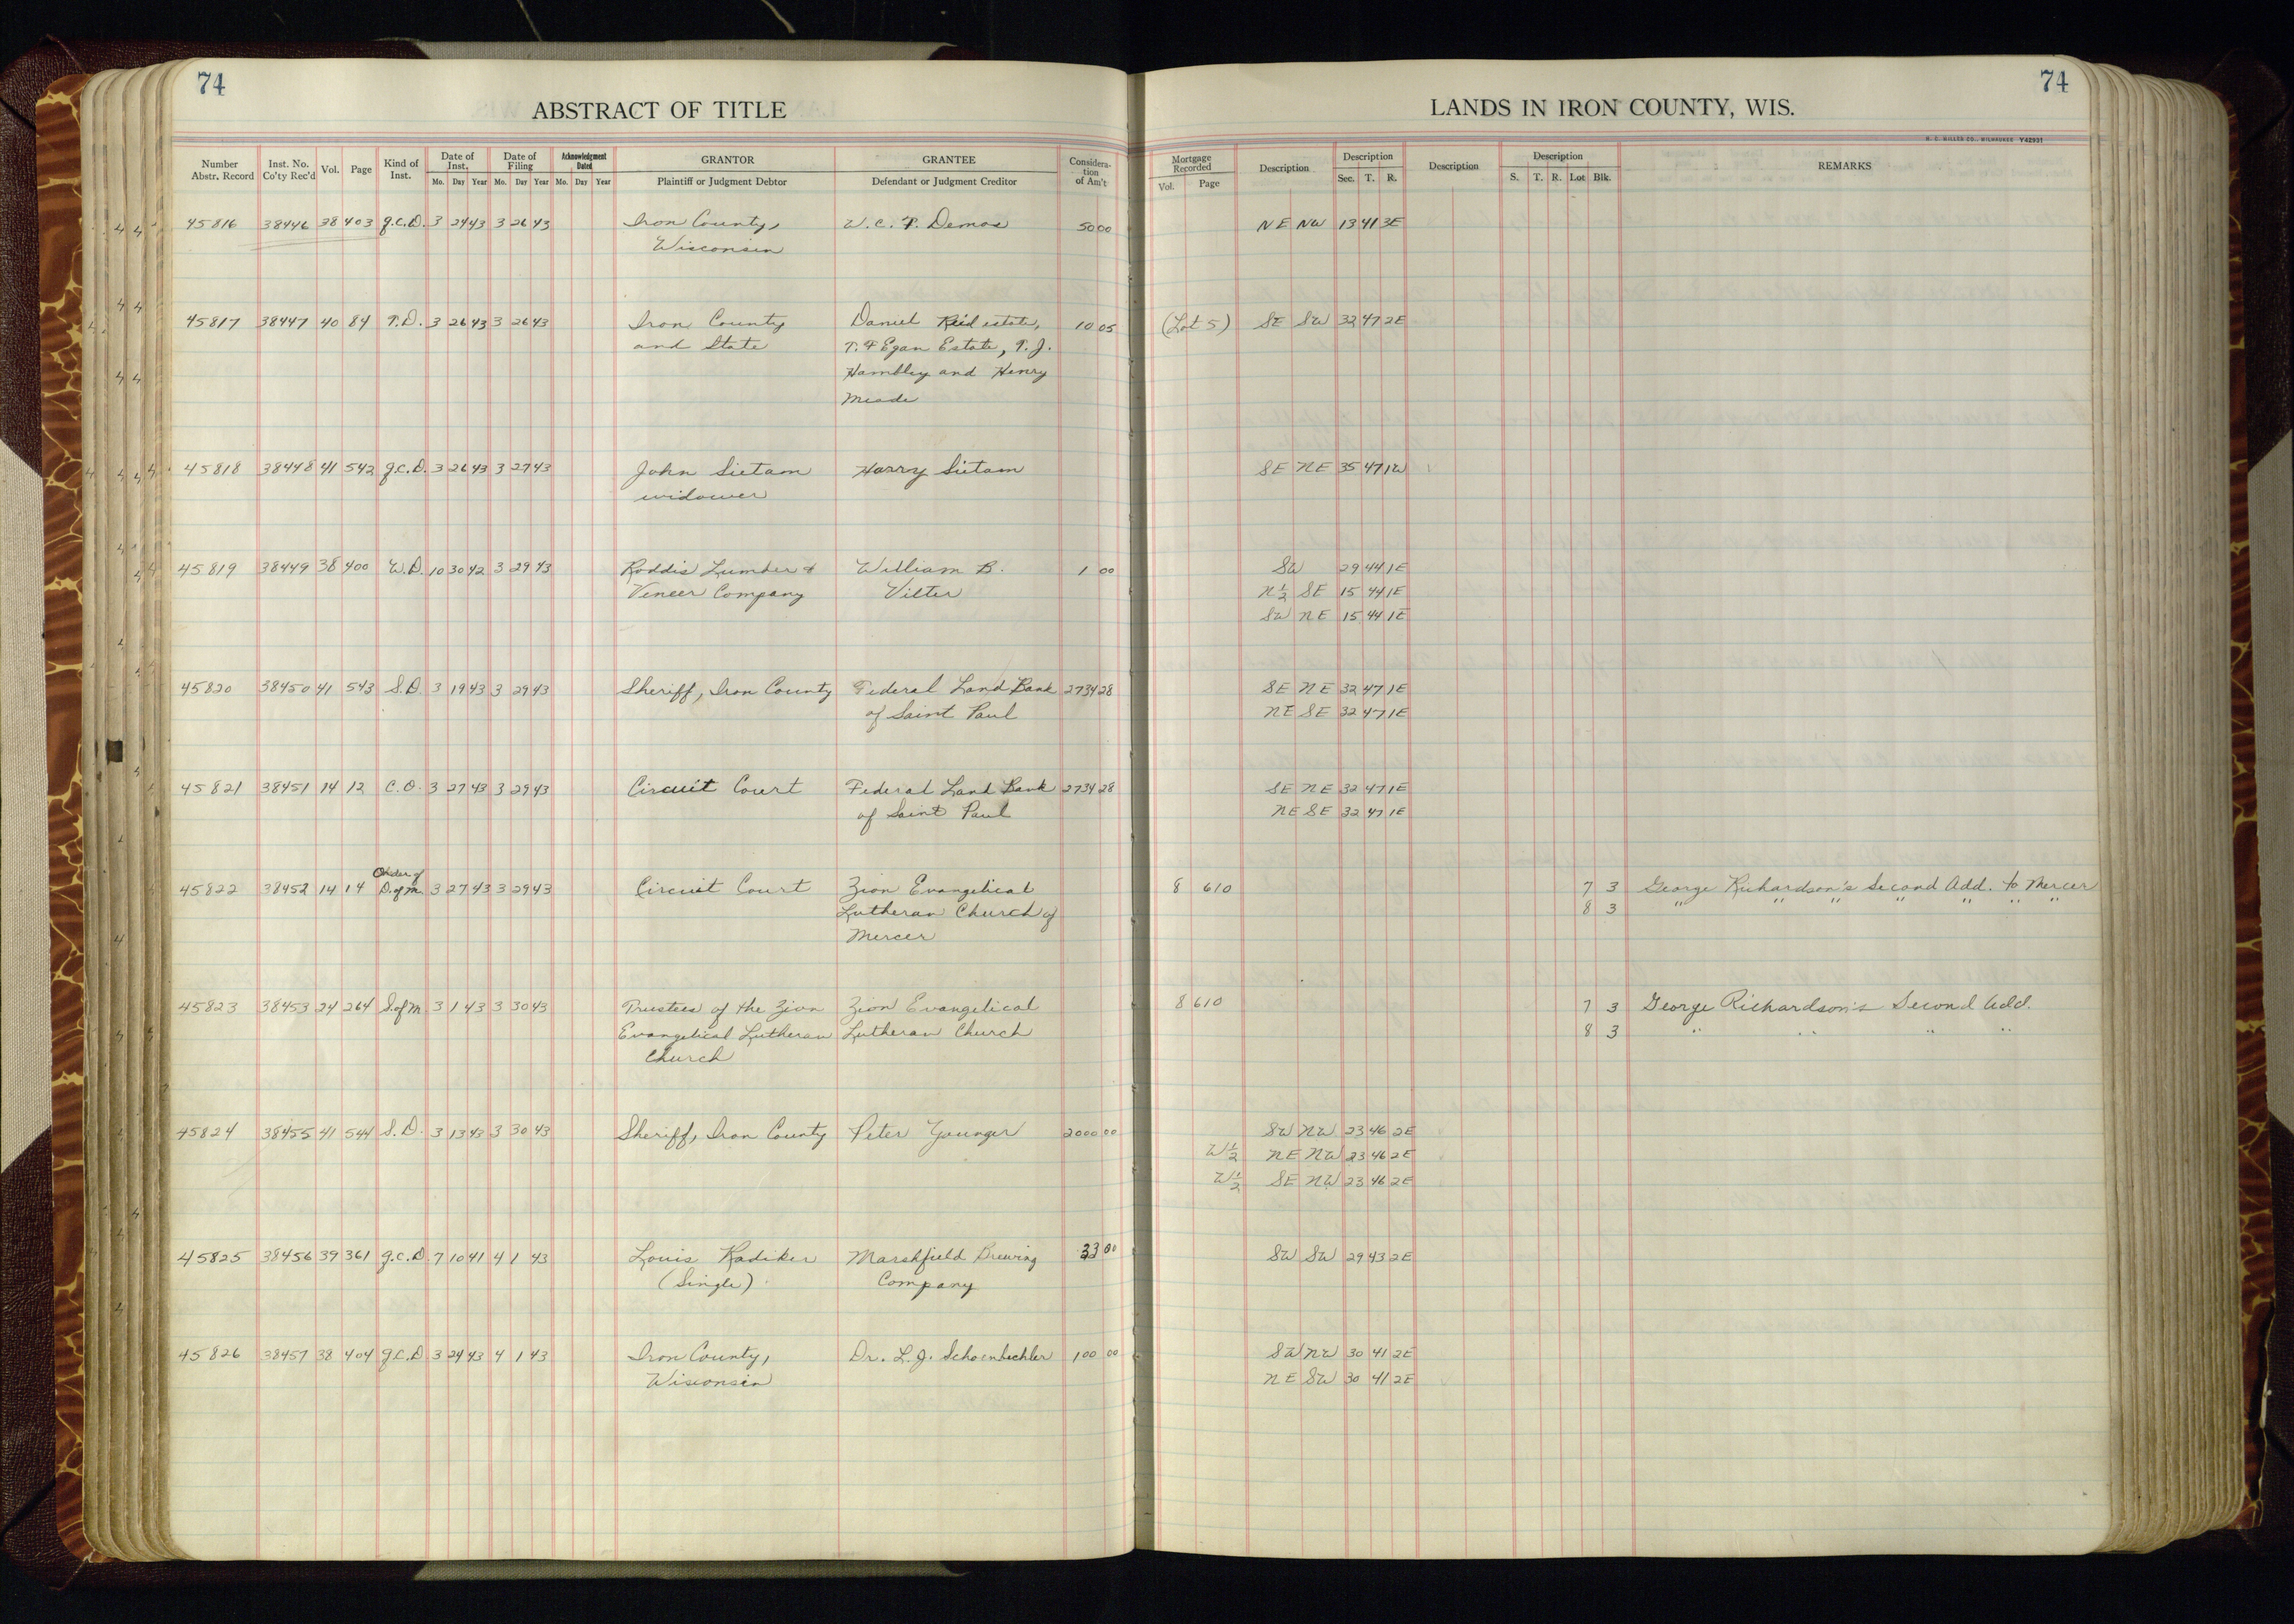 74
ABSTRACT OF TITLE
Number Abstr. Record Inst. No. Co'ty Rec'd Vol. Page Kind of Inst. Date of Inst. Mo. Day Year Date of Filing Mo. Day Year Acknowledgment Dated Mo. Day Year GRANTOR Plaintiff or Judgment Debtor GRANTEE Defendant or Judgment Creditor Considera-tion of Am't
74
LANDS IN IRON COUNTY, WIS.
H. C. MILLER CO., MILWAUKEE Y42931
Mortgage Recorded Vol. Page Description Description Sec. T. R. Description Description S. T. R. Lot Blk. REMARKS
45816 38446 38 403 q.c.D. 3 24 43 3 26 43 Iron County, W.C.T. Demos 50 00 NE NW 13 41 3E
Wisconsin
45817 38447 40 84 T.D. 3 26 43 3 26 43 Iron County Daniel Reid estate, 10 05 (Lot 5) SE SW 32 47 2E
and State T. F Egan Estate, T. J.
Hambley and Henry
Meade
45818 38448 41 542 q.c.D. 3 26 43 3 27 43 John Sietam Harry Sietam SE NE 35 47 1W
widower
45819 38449 38 400 W.D. 10 30 42 3 29 43 Roddis Lumber & William B. 1 00 SW 29 44 1E
Veneer Company Vilter N½ SE 15 44 1E
SW NE 15 44 1E
45820 38450 41 543 S.D. 3 19 43 3 29 43 Sheriff, Iron County Federal Land Bank 2734 28 SE NE 32 47 1E
of Saint Paul NE SE 32 47 1E
45821 38451 14 12 C.O. 3 27 43 3 29 43 Circuit Court Federal Land Bank 2734 28 SE NE 32 47 1E
of Saint Paul NE SE 32 47 1E
Order of
45822 38452 14 14 D.of M. 3 27 43 3 29 43 Circuit Court Zion Evangelical 8 610 7 3 George Richardson's Second Add. to Mercer
Lutheran Church of 8 3 " " " " " " "
Mercer
45823 38453 24 264 S.of M. 3 1 43 3 30 43 Trustees of the Zion Zion Evangelical 8 610 7 3 George Richardson's Second Add.
Evangelical Lutheran Lutheran Church 8 3 " " " "
Church
45824 38455 41 544 S.D. 3 13 43 3 30 43 Sheriff, Iron County Peter Younger 2000 00 SW NW 23 46 2E
W½ NE NW 23 46 2E
W½ SE NW 23 46 2E
45825 38456 39 361 q.c.D 7 10 41 4 1 43 Louis Kadiker Marshfield Brewing 33 00 SW SW 29 43 2E
(Single) Company
45826 38457 38 404 q.c.D 3 24 43 4 1 43 Iron County, Dr. L. J. Schoenbechler 100 00 SW NW 30 41 2E
Wisconsin NE SW 30 41 2E